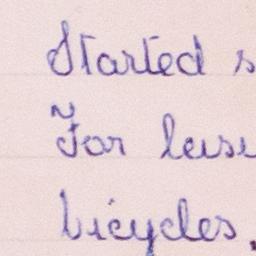 Started s
For leisu
bicycles.